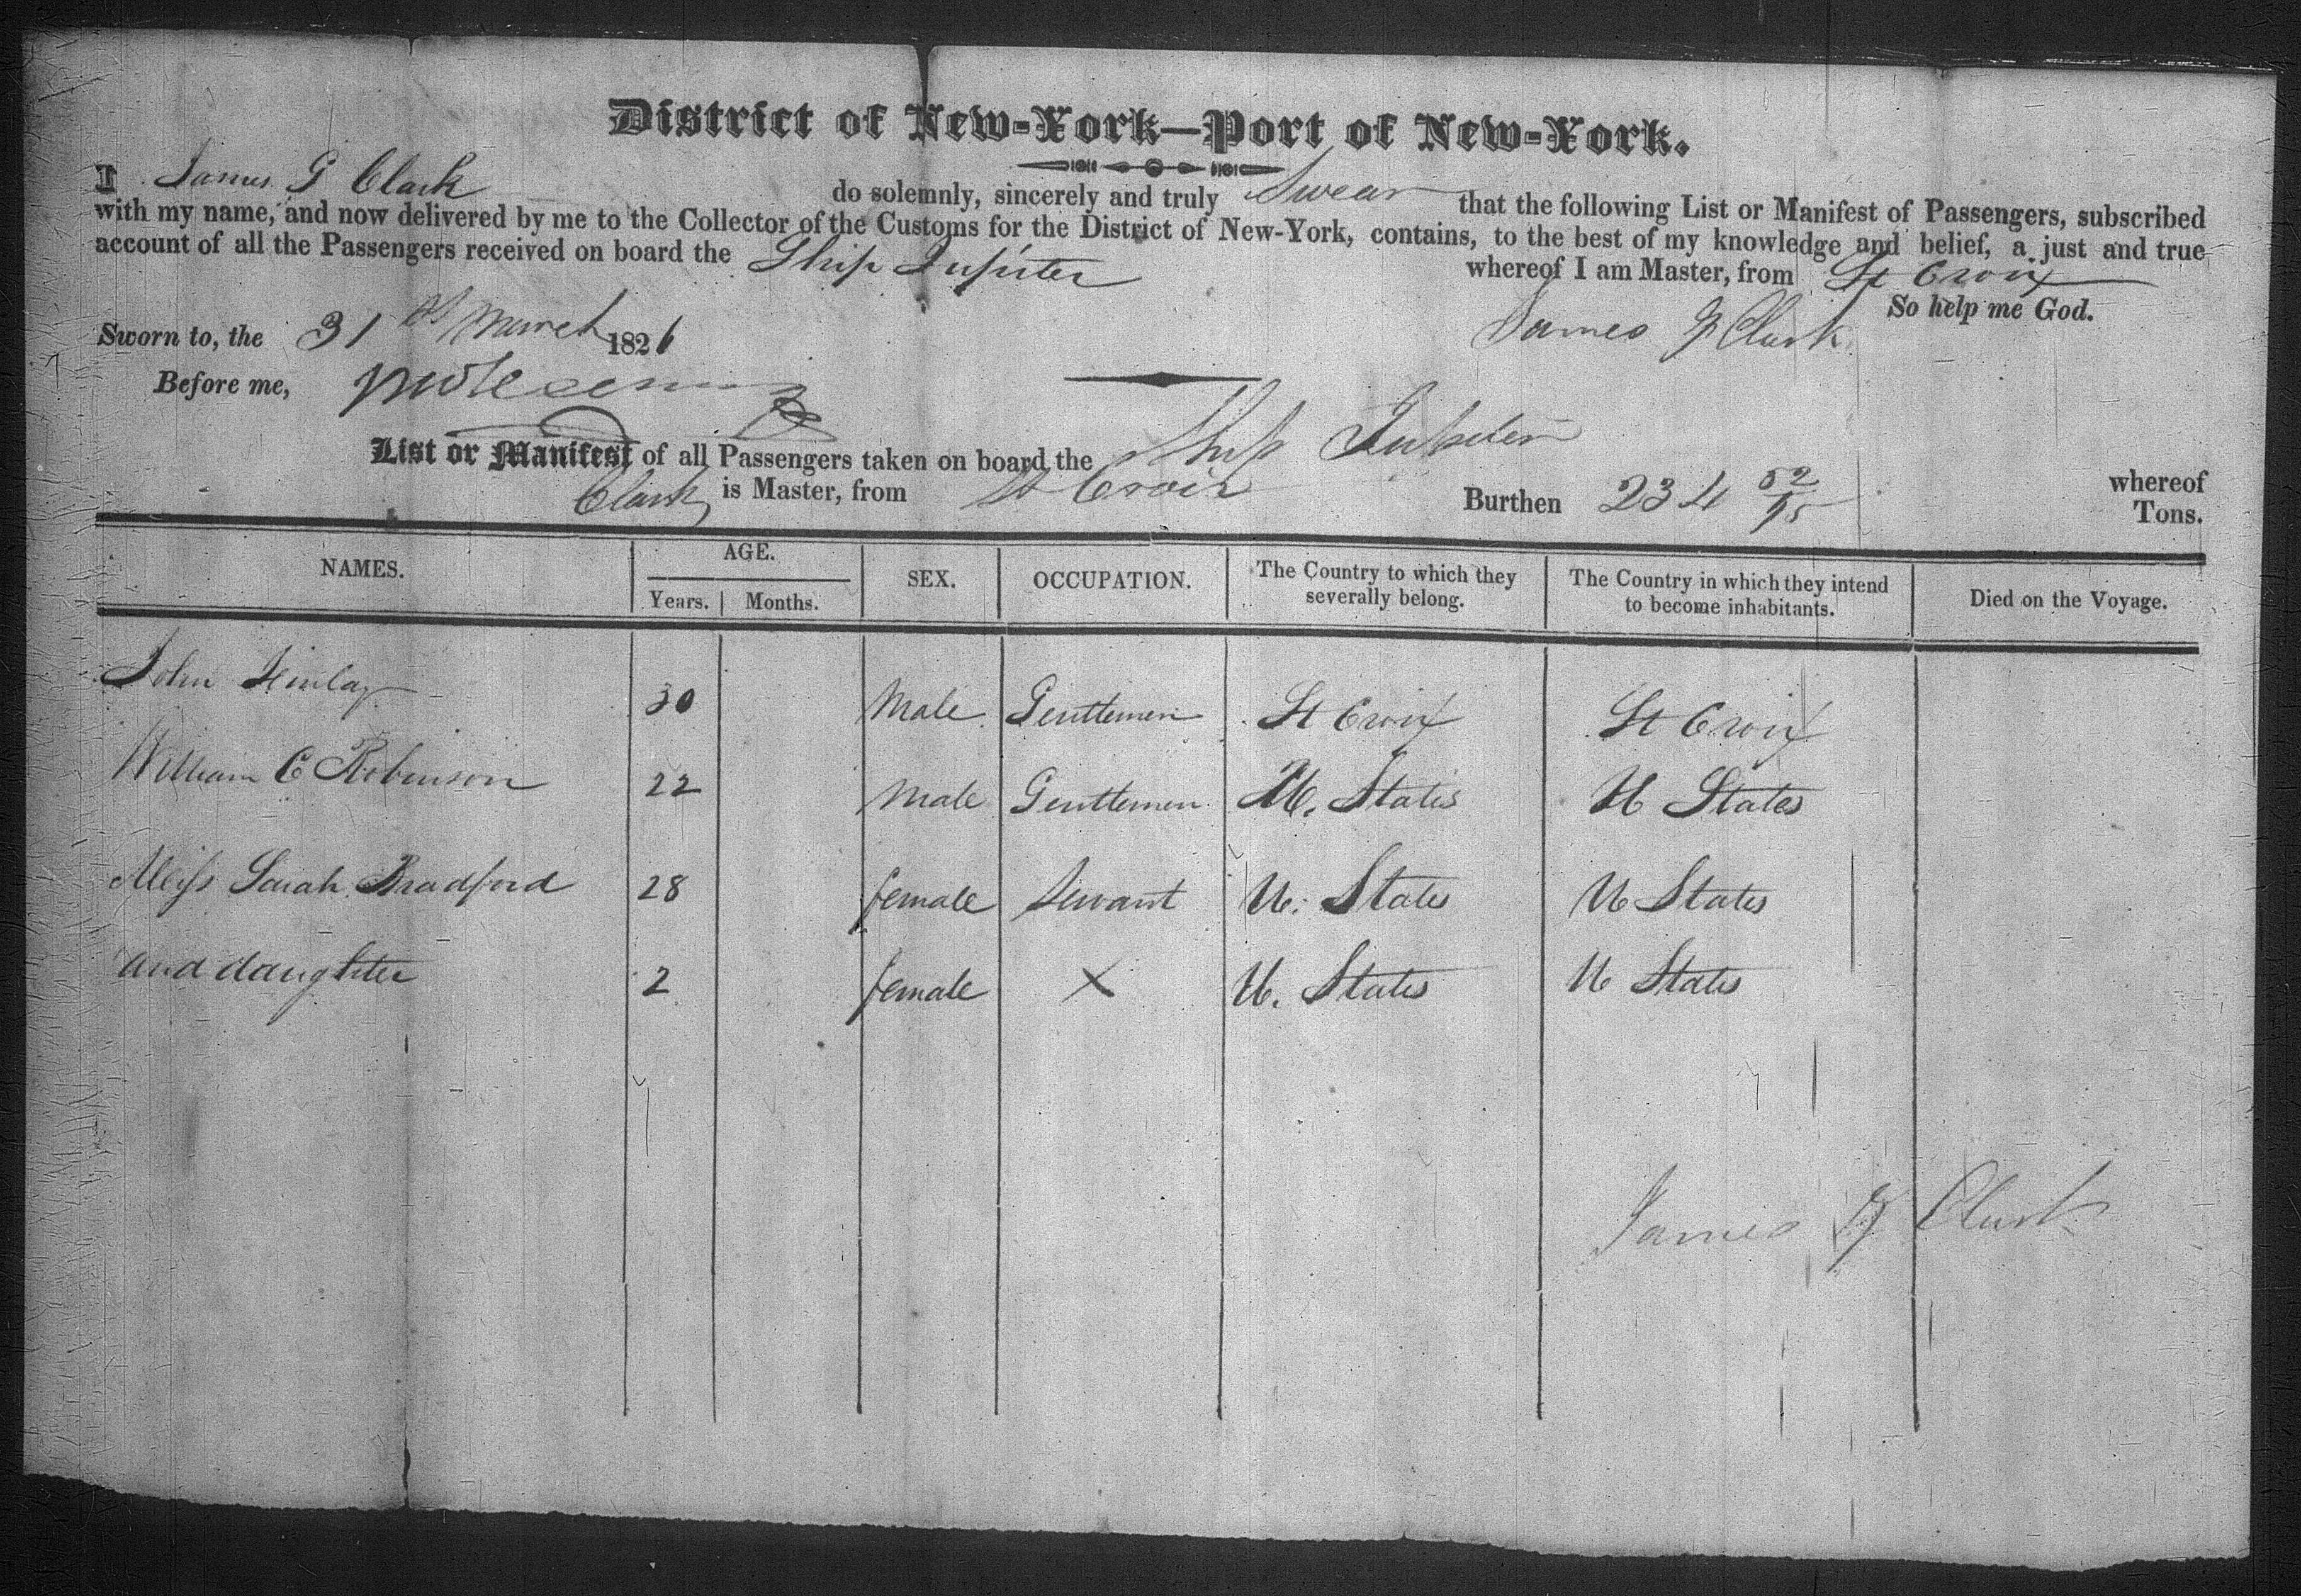 District of New-York—Port of New-York.
I James G Clark do solemnly, sincerely and truly Swear that the following List or Manifest of Passengers, subscribed
with my name, and now delivered by me to the Collector of the Customs for the District of New-York, contains, to the best of my knowledge and belief, a just and true
account of all the Passengers received on board the Ship Jupiter whereof I am Master, from St Croix
So help me God.
Sworn to, the 31st March 1826 James G Clark
Before me,
List or Manifest of all Passengers taken on board the Ship Jupiter whereof
Clark is Master, from St Croix Burthen 234 52/95 Tons.
NAMES. AGE. SEX. OCCUPATION. The Country to which they severally belong. The Country in which they intend to become inhabitants. Died on the Voyage.
Years. Months.
John Finlay 30 Male Gentlemen St Croix St Croix
William C Robinson 22 Male Gentlemen U. States U States
Miss Sarah Bradford 28 female Servant U. States U States
and daughter 2 female X U. States U States
James G Clark